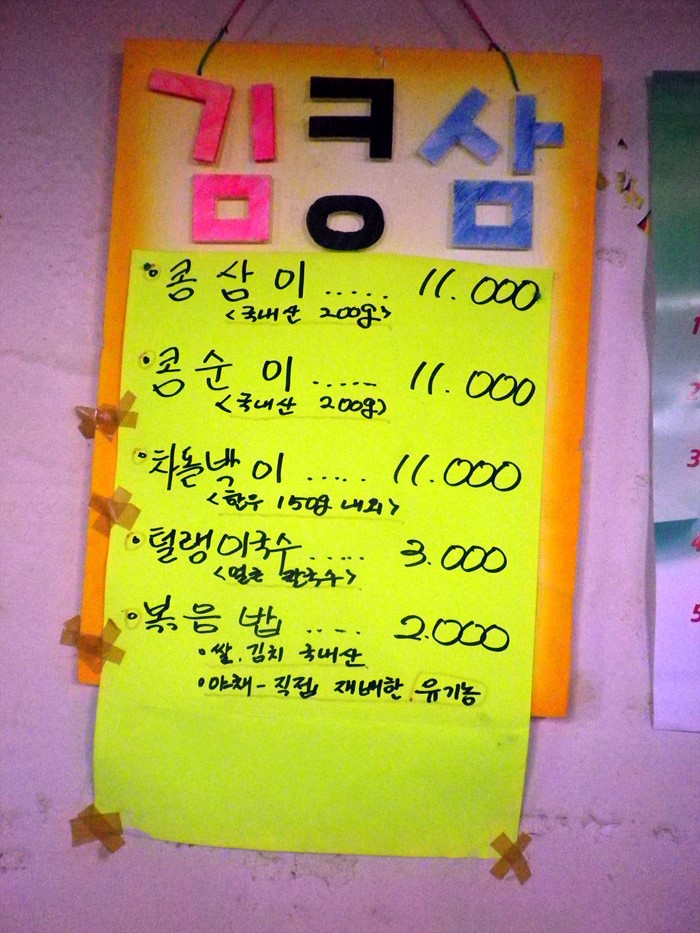 김콩삼
• 콩 삼 이 ..... 11.000
<국내산 200g>
• 콩 순 이 ...... 11.000
<국내산 200g>
• 차돌박이 ..... 11.000
<한우 150g 내외>
• 털랭이국수 ..... 3.000
<멸치 칼국수>
• 볶음 밥 ..... 2.000
• 쌀, 김치 국내산
• 야채 - 직접 재배한 유기농
1
2
3
4
5